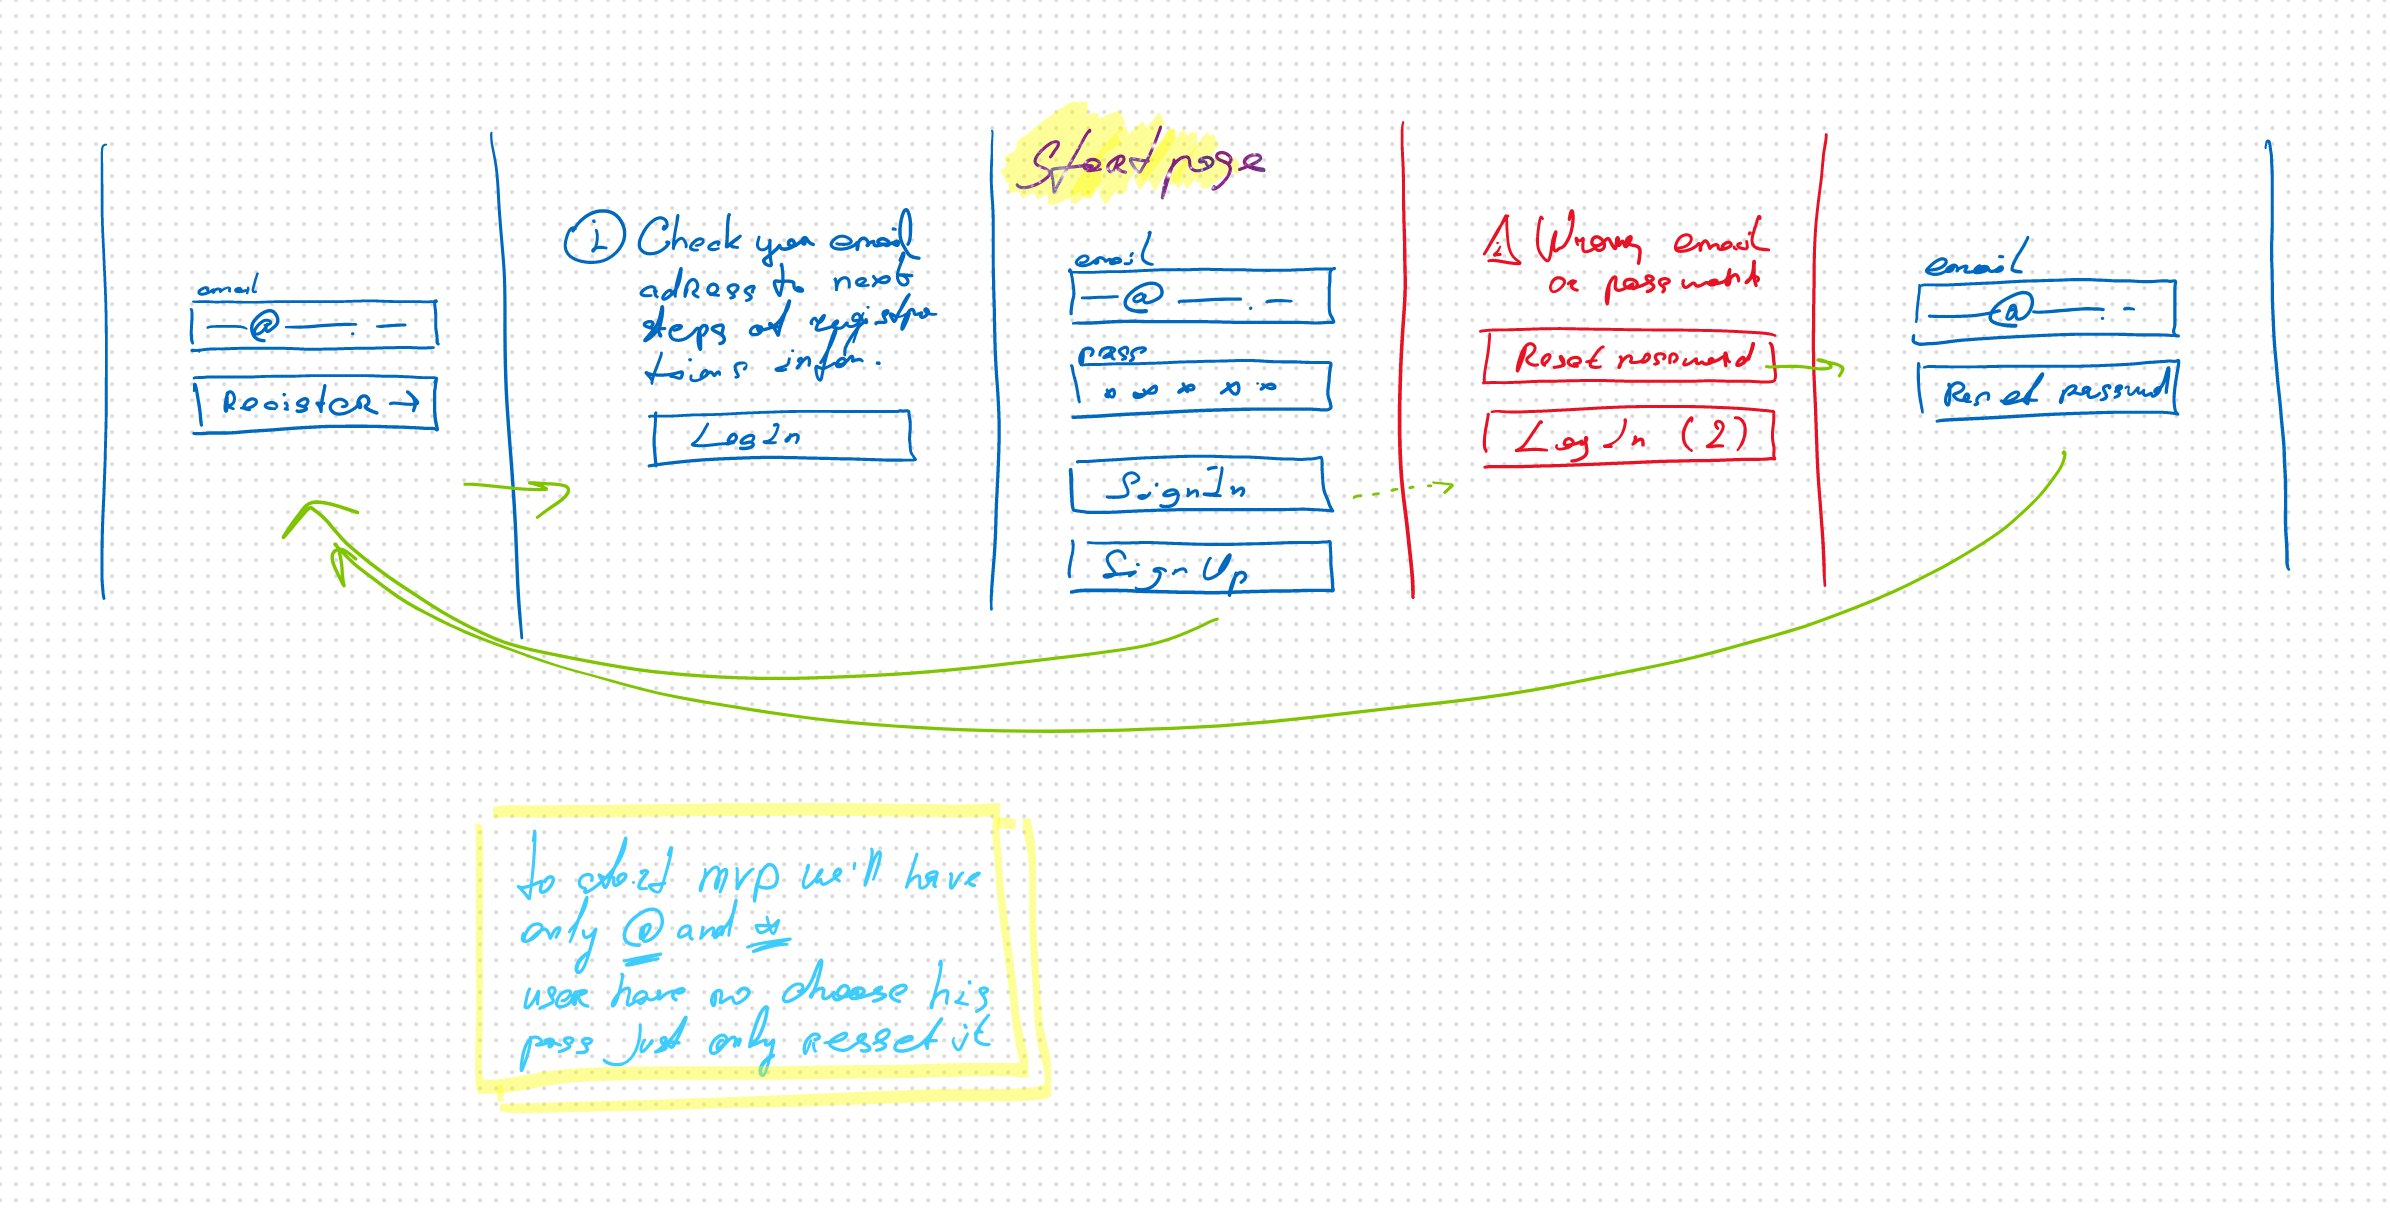 email
@
Register →
i Check your email
adress to next
steps of registra
tions infor.
LogIn
Start page
email
@
pass
* * * * *
SignIn
Sign Up
Wrong email
or password
Reset password
Log In (2)
email
@
Reset password
to start mvp we'll have
only @ and *
user have no choose his
pass just only resset it